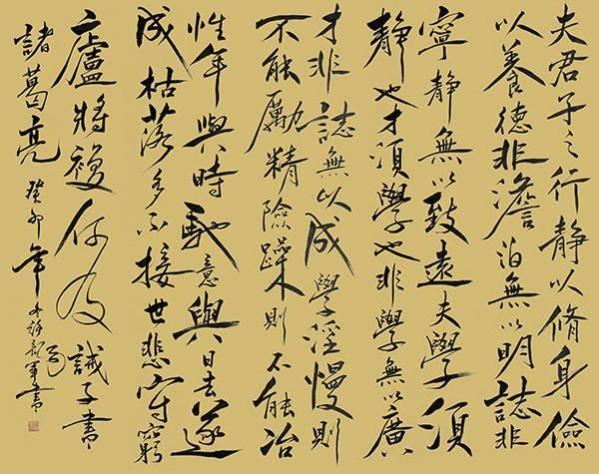 夫君子之行静以脩身儉
以養德非澹泊無以明誌非
寧静無以致遠夫學須
静也才須學也非學無以廣
才非誌無以成學淫慢則
不能勵精險躁則不能冶
性年與時馳意與日去遂
成枯落多不接世悲守窮
廬將複何及誡子書
諸葛亮癸卯年冬